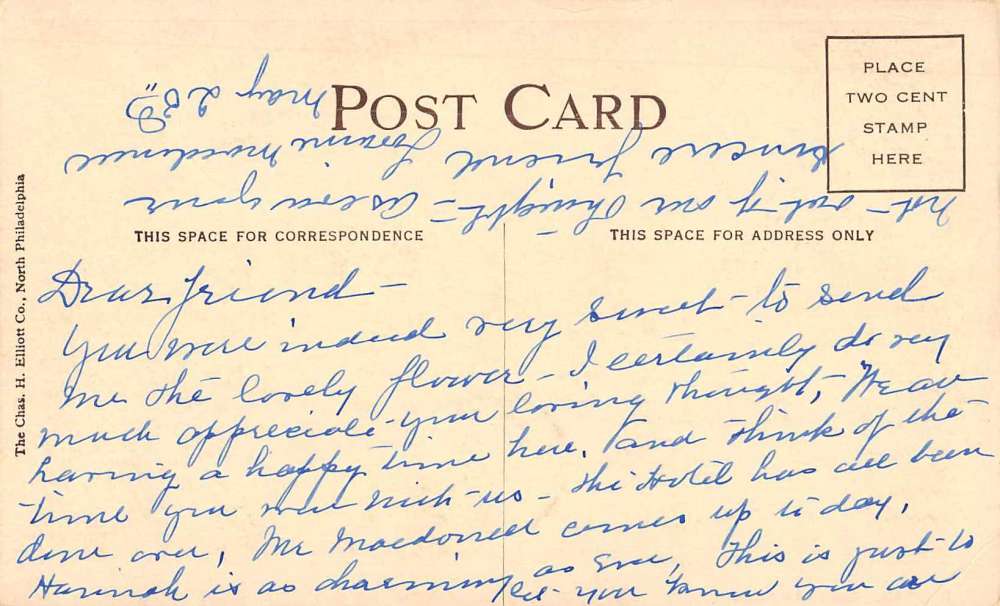 POST CARD
PLACE
TWO CENT
STAMP
HERE
THIS SPACE FOR CORRESPONDENCE
THIS SPACE FOR ADDRESS ONLY
The Chas. H. Elliott Co., North Philadelphia
Dear friend -
You were indeed very sweet to send
me the lovely flower - I certainly do very
much appreciate your loving thought, We are
having a happy time here, and think of the
time you were with us - the Hotel has all been
done over, Mr Macdonald comes up to day,
Hannah is as charming as ever, This is just to
let you know you are
not out of our thought = as ever your
sincere friend Macdonald
May 23rd